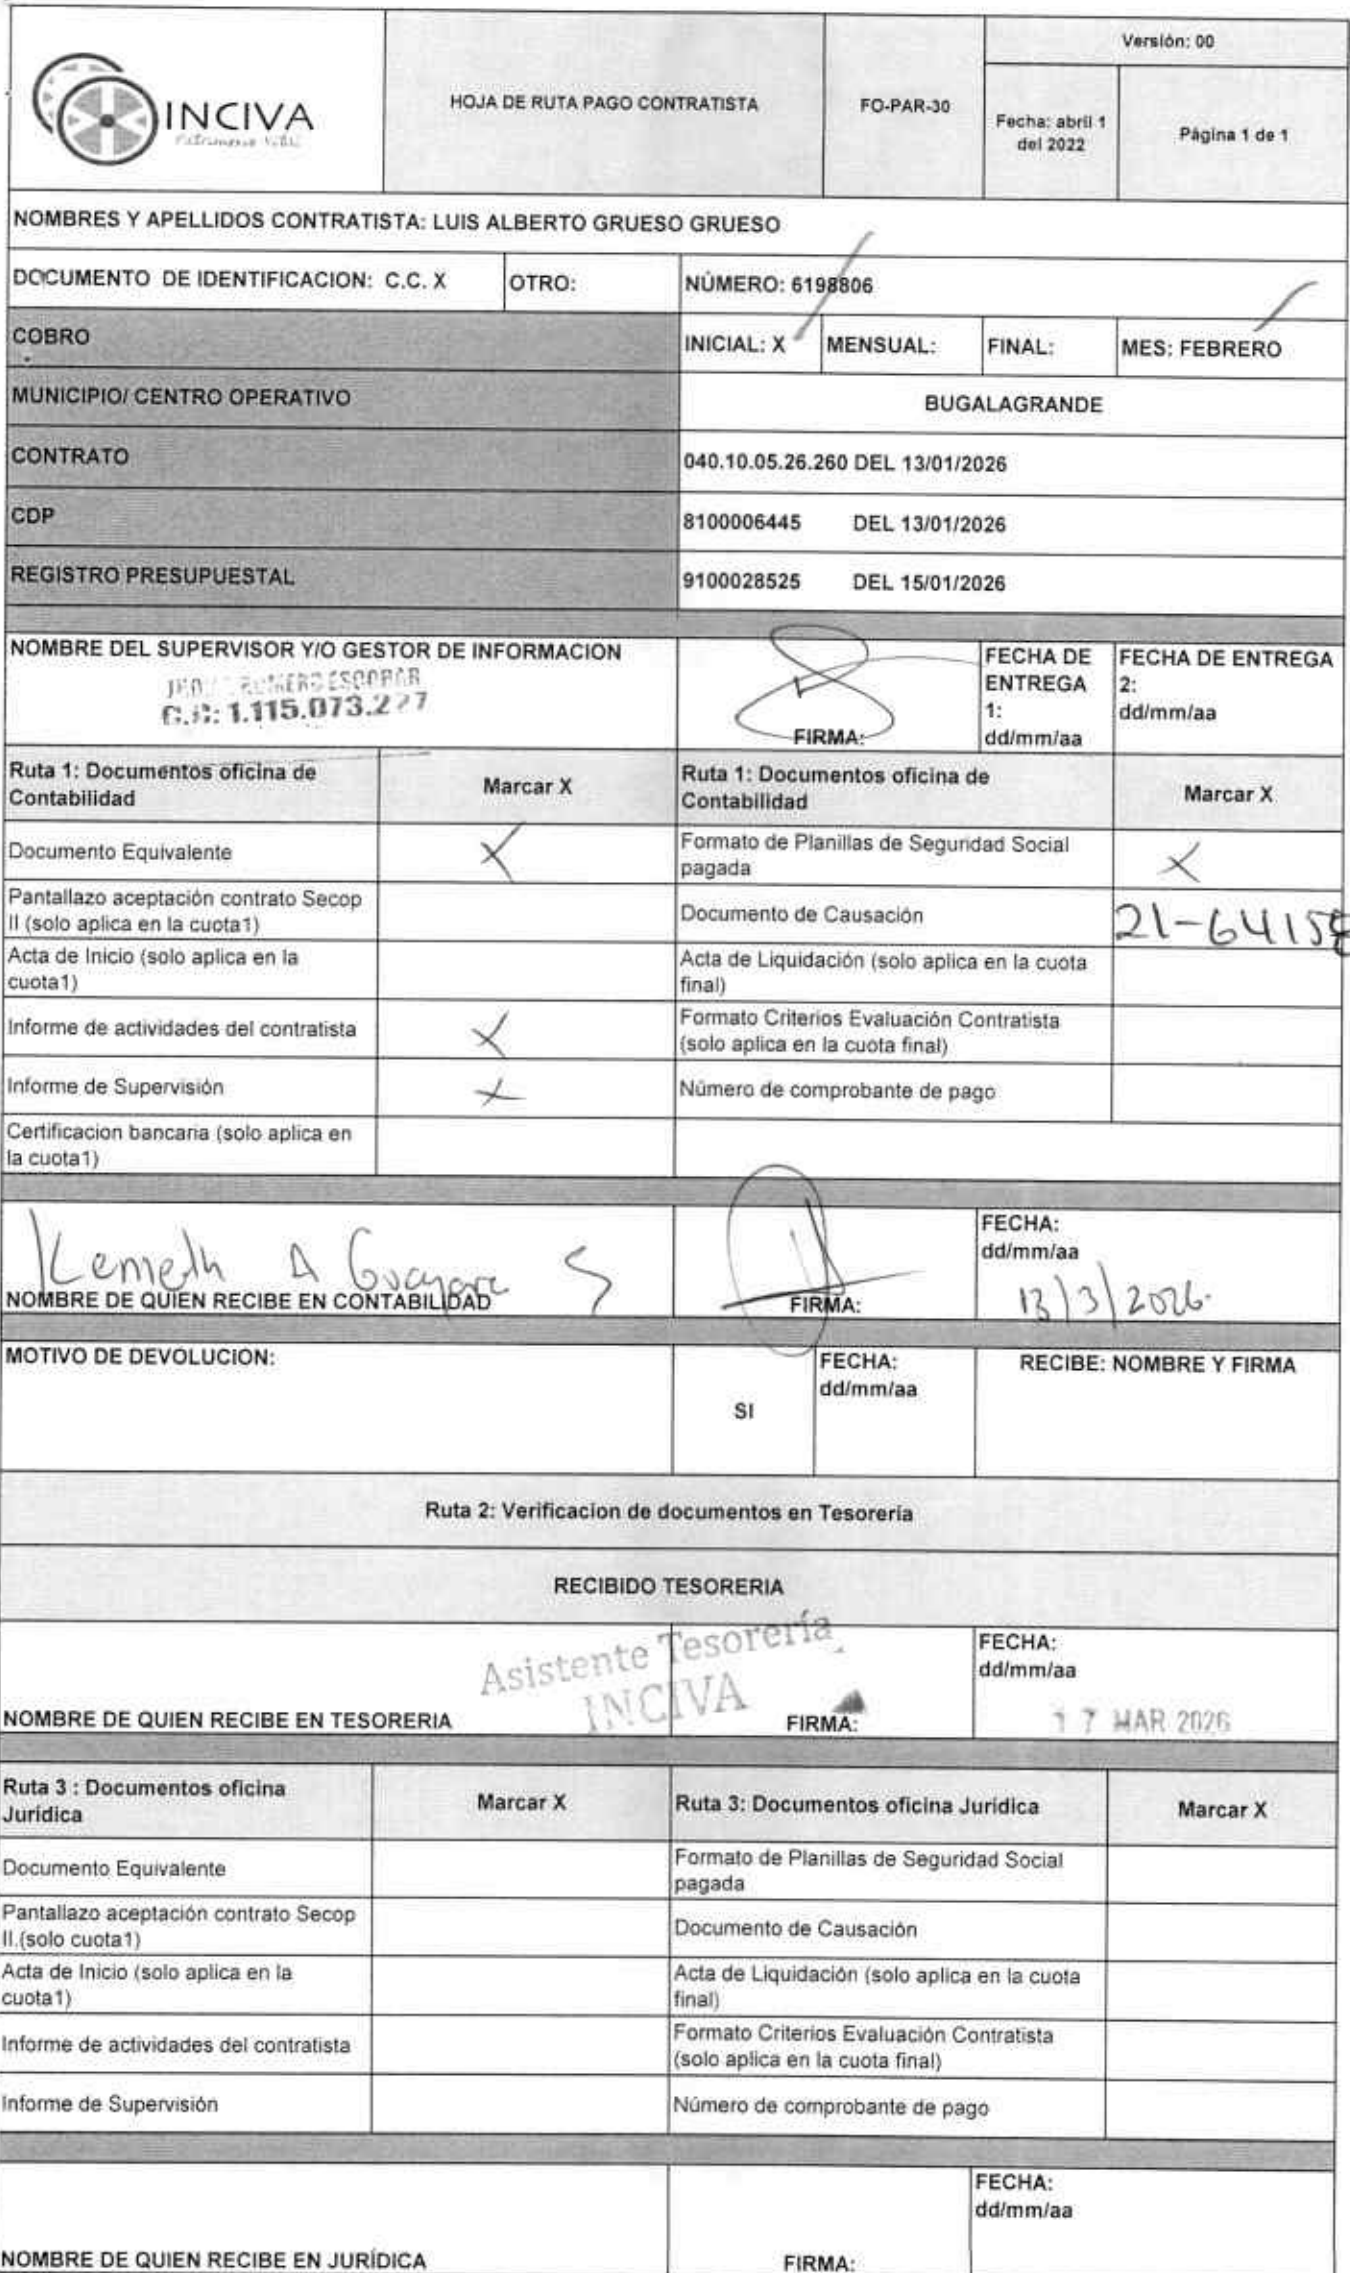 INCIVA
HOJA DE RUTA PAGO CONTRATISTA
FO-PAR-30
Versión: 00
Fecha: abril 1
del 2022
Página 1 de 1
NOMBRES Y APELLIDOS CONTRATISTA: LUIS ALBERTO GRUESO GRUESO
DOCUMENTO DE IDENTIFICACION: C.C. X
OTRO:
NÚMERO: 6198806
COBRO
INICIAL: X
MENSUAL:
FINAL:
MES: FEBRERO
MUNICIPIO/ CENTRO OPERATIVO
BUGALAGRANDE
CONTRATO
040.10.05.26.260 DEL 13/01/2026
CDP
8100006445 DEL 13/01/2026
REGISTRO PRESUPUESTAL
9100028525 DEL 15/01/2026
NOMBRE DEL SUPERVISOR Y/O GESTOR DE INFORMACION
ROMERO ESCOBAR
C.C: 1.115.073.227
FIRMA:
FECHA DE
ENTREGA
1:
dd/mm/aa
FECHA DE ENTREGA
2:
dd/mm/aa
Ruta 1: Documentos oficina de
Contabilidad
Marcar X
Ruta 1: Documentos oficina de
Contabilidad
Marcar X
Documento Equivalente
X
Formato de Planillas de Seguridad Social
pagada
X
Pantallazo aceptación contrato Secop
II (solo aplica en la cuota1)
Documento de Causación
21-6415
Acta de Inicio (solo aplica en la
cuota1)
Acta de Liquidación (solo aplica en la cuota
final)
Informe de actividades del contratista
X
Formato Criterios Evaluación Contratista
(solo aplica en la cuota final)
Informe de Supervisión
X
Número de comprobante de pago
Certificacion bancaria (solo aplica en
la cuota1)
Kemeth A S
NOMBRE DE QUIEN RECIBE EN CONTABILIDAD
FIRMA:
FECHA:
dd/mm/aa
13/3/2026.
MOTIVO DE DEVOLUCION:
SI
FECHA:
dd/mm/aa
RECIBE: NOMBRE Y FIRMA
Ruta 2: Verificacion de documentos en Tesoreria
RECIBIDO TESORERIA
Asistente Tesorería
INCIVA
NOMBRE DE QUIEN RECIBE EN TESORERIA
FIRMA:
FECHA:
dd/mm/aa
17 MAR 2026
Ruta 3 : Documentos oficina
Jurídica
Marcar X
Ruta 3: Documentos oficina Jurídica
Marcar X
Documento Equivalente
Formato de Planillas de Seguridad Social
pagada
Pantallazo aceptación contrato Secop
II.(solo cuota1)
Documento de Causación
Acta de Inicio (solo aplica en la
cuota1)
Acta de Liquidación (solo aplica en la cuota
final)
Informe de actividades del contratista
Formato Criterios Evaluación Contratista
(solo aplica en la cuota final)
Informe de Supervisión
Número de comprobante de pago
NOMBRE DE QUIEN RECIBE EN JURÍDICA
FIRMA:
FECHA:
dd/mm/aa